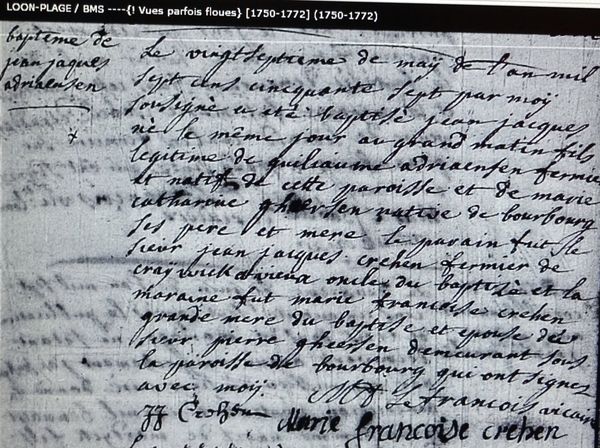 LOON-PLAGE / BMS ----{! Vues parfois floues} [1750-1772] (1750-1772)
baptême de
jean jaques
adriaensen
Le vingtseptieme de maÿ de l'an mil
sept cens cinquante sept par moÿ
sousigné a été baptisé jean jacques
né le même jour au grand matin fils
legitime de guilliaume adriaensen fermier
et natif de cette paroisse et de marie
catharine gheersen native de bourbourg
ses pere et mere le parain fut le
sieur jean jacques crehen fermier de
craywick oncle du baptisé et la
maraine fut marie francoise crehen
grande mere du baptisé et epouse de
sieur pierre gheersen demeurant sous
la paroisse de bourbourg qui ont signés
avec moÿ.
Lefrancois vicaire
JJ Crehen
Marie francoise crehen